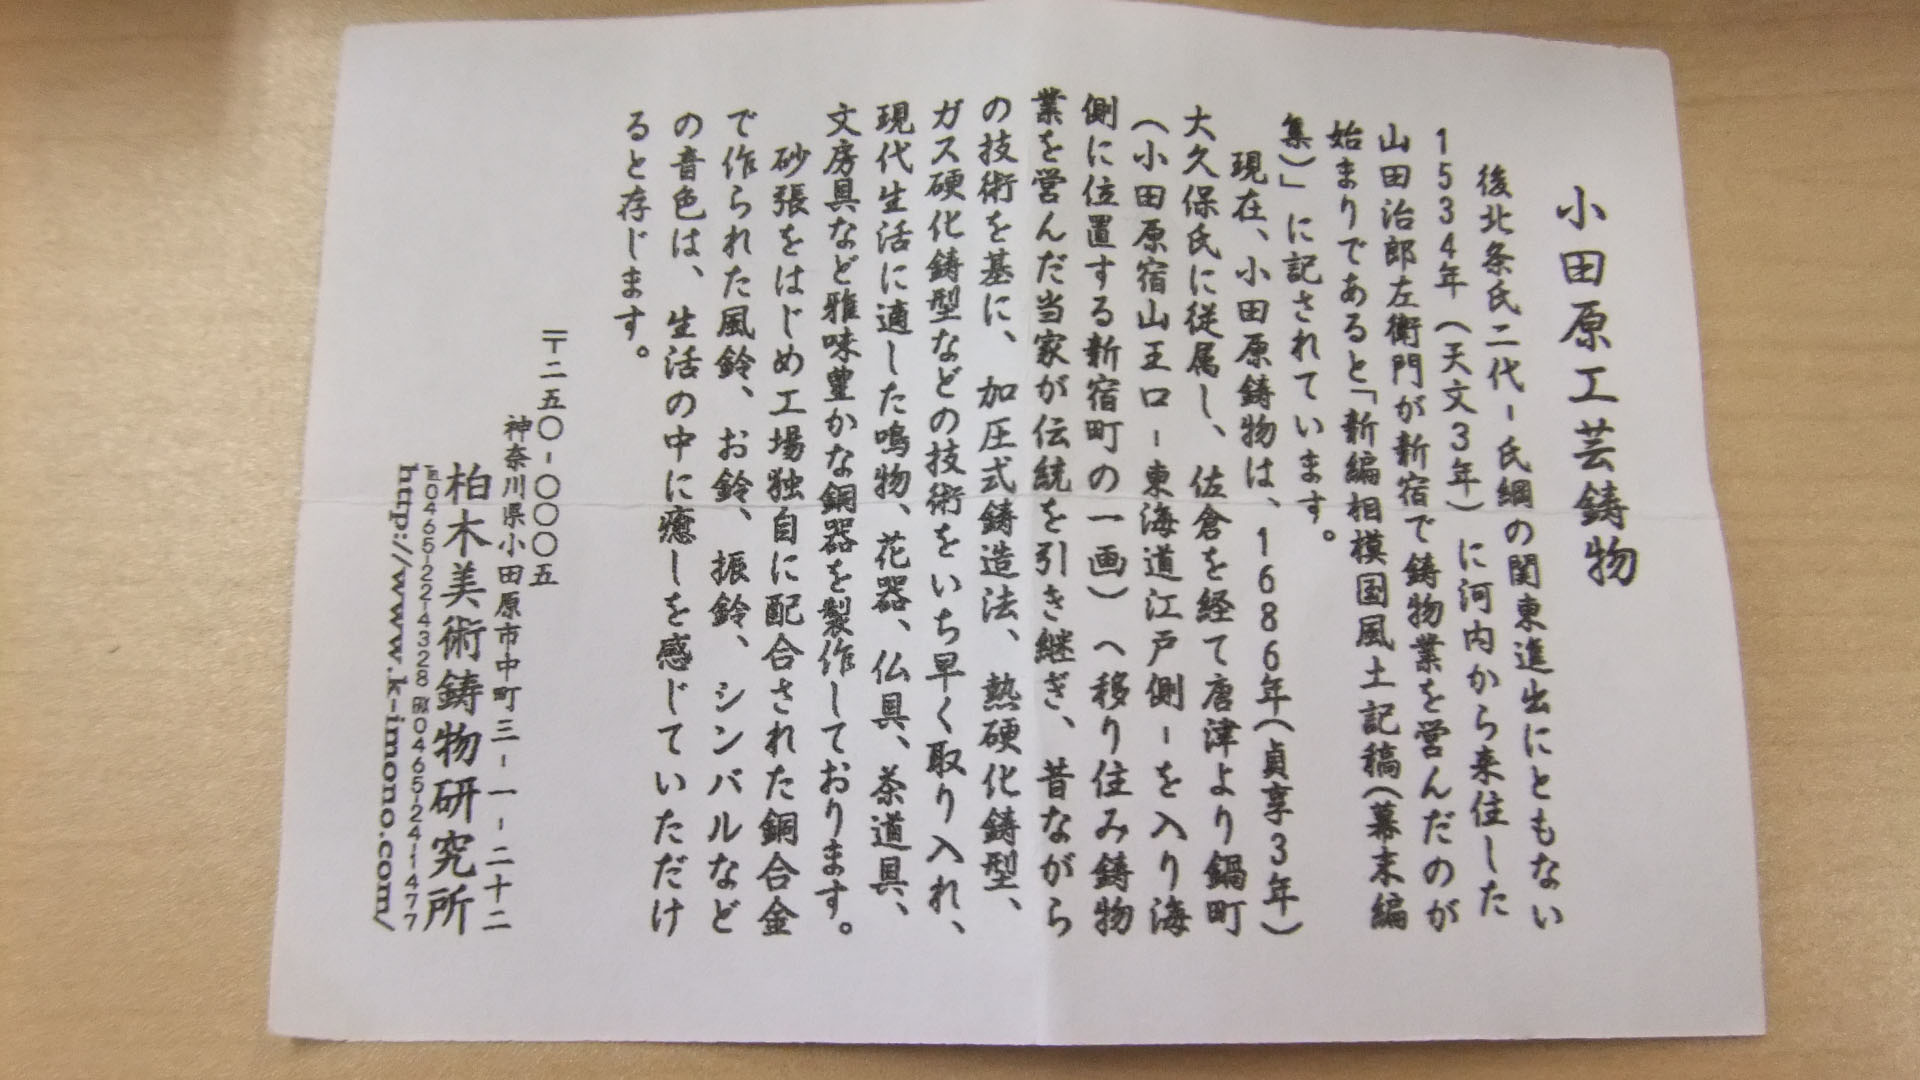 小田原工芸鋳物
後北条氏二代－氏綱の関東進出にともない
1534年（天文3年）に河内から来住した
山田治郎左衛門が新宿で鋳物業を営んだのが
始まりであると「新編相模国風土記稿（幕末編
集）」に記されています。
現在、小田原鋳物は、1686年（貞享3年）
大久保氏に従属し、佐倉を経て唐津より鍋町
（小田原宿山王口－東海道江戸側－を入り海
側に位置する新宿町の一画）へ移り住み鋳物
業を営んだ当家が伝統を引き継ぎ、昔ながら
の技術を基に、加圧式鋳造法、熱硬化鋳型、
ガス硬化鋳型などの技術をいち早く取り入れ、
現代生活に適した鳴物、花器、仏具、茶道具、
文房具など雅味豊かな銅器を製作しております。
砂張をはじめ工場独自に配合された銅合金
で作られた風鈴、お鈴、振鈴、シンバルなど
の音色は、生活の中に癒しを感じていただけ
ると存じます。
〒二五〇－〇〇〇五
神奈川県小田原市中町三－一－二十二
柏木美術鋳物研究所
℡0465-22-4328 ℻0465-24-1477
http://www.k-imono.com/